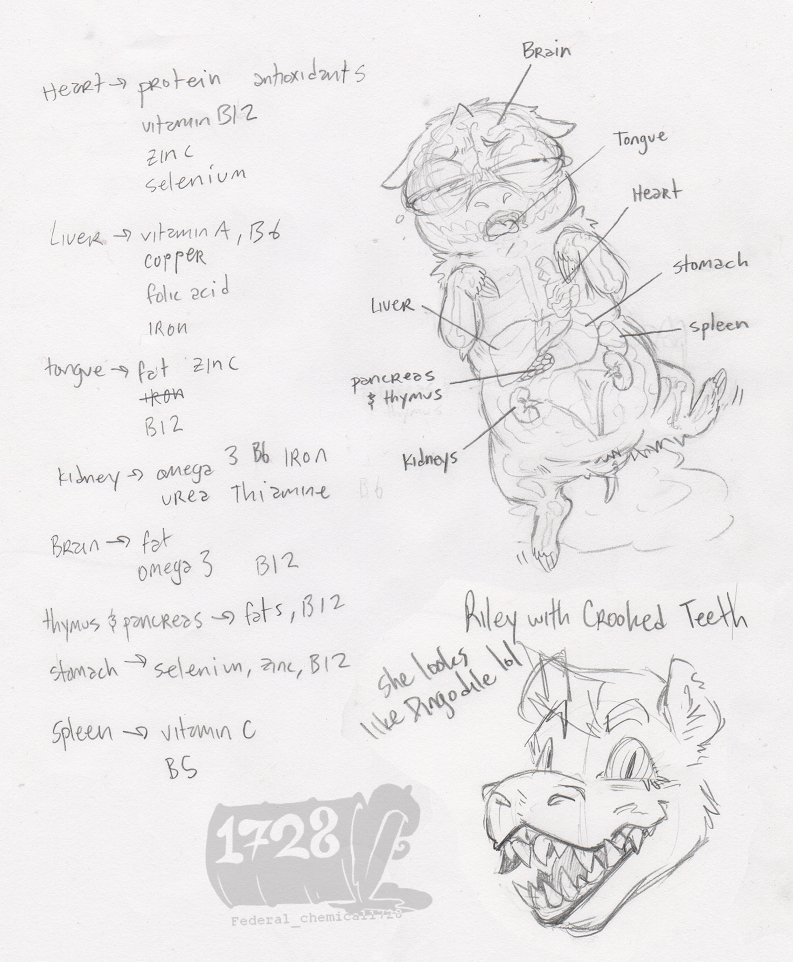 Heart → protein antioxidants
vitamin B12
zinc
selenium
Liver → vitamin A, B6
copper
folic acid
iron
tongue → fat zinc
iron
B12
kidney → omega 3 B6 iron
urea Thiamine B6
Brain → fat
omega 3 B12
thymus & pancreas → fats, B12
stomach → selenium, zinc, B12
Spleen → vitamin C
B5
Brain
Tongue
Heart
stomach
Liver
spleen
pancreas
& thymus
kidneys
Riley with Crooked Teeth
she looks
like Dingodile lol
1728
Federal_chemical1728